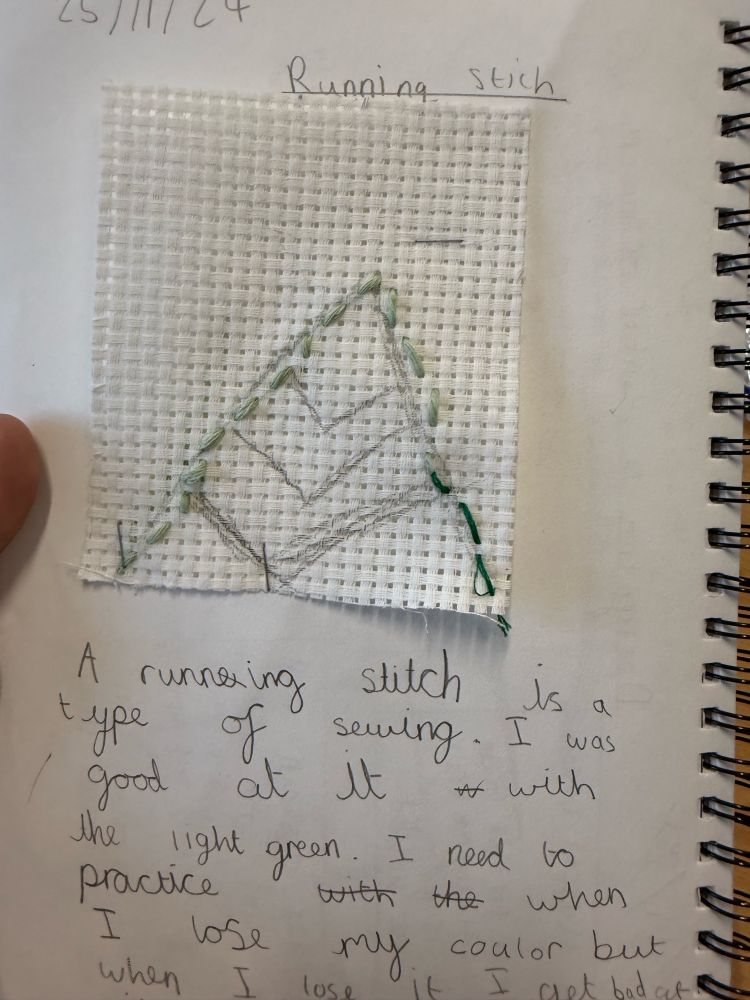 25/11/24
Running stich
A running stitch is a
type of sewing. I was
good at it w with
the light green. I need to
practice with the when
I lose my coulor but
when I lose it I get bad at